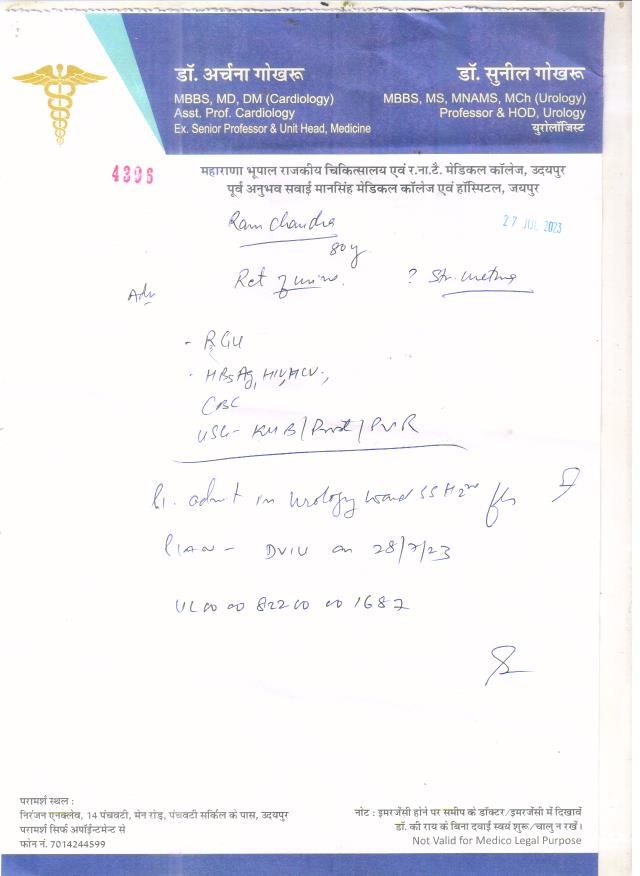 डॉ. अर्चना गोखरू
MBBS, MD, DM (Cardiology)
Asst. Prof. Cardiology
Ex. Senior Professor & Unit Head, Medicine
डॉ. सुनील गोखरू
MBBS, MS, MNAMS, MCh (Urology)
Professor & HOD, Urology
युरोलॉजिस्ट
4396
महाराणा भूपाल राजकीय चिकित्सालय एवं र.ना.टै. मेडिकल कॉलेज, उदयपुर
पूर्व अनुभव सवाई मानसिंह मेडिकल कॉलेज एवं हॉस्पिटल, जयपुर
Ram Chandra
27 JUL 2023
80y
Ret of urine. ? Str. urethra
Adv
- RGU
- HBsAg, HIV, HCV,
CBC
USG - KUB/Prost/PVR
admit in Urology ward SSH 2nd
PLAN - DVIU on 28/7/23
परामर्श स्थल :
निरंजन एनक्लेव, 14 पंचवटी, मेन रोड़, पंचवटी सर्किल के पास, उदयपुर
परामर्श सिर्फ अपॉईन्टमेन्ट से
फोन नं. 7014244599
नोट : इमरजेंसी होने पर समीप के डॉक्टर/इमरजेंसी में दिखावें
डॉ. की राय के बिना दवाई स्वयं शुरू/चालु न रखें।
Not Valid for Medico Legal Purpose